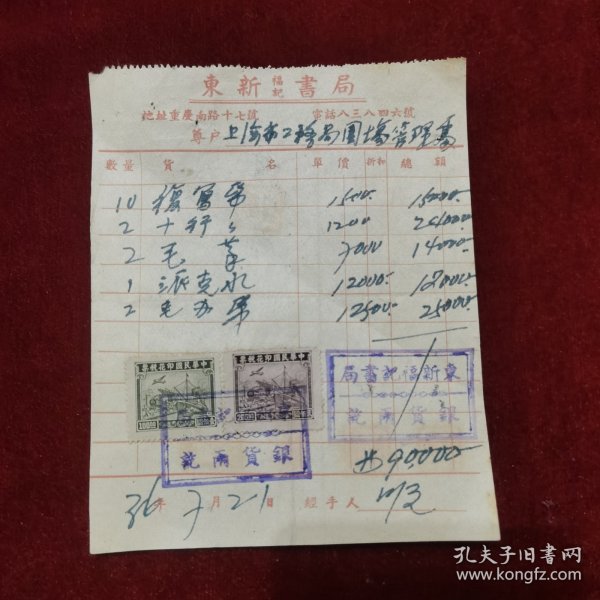 東新福記書局
地址重慶南路十七號 電話八三八四六號
尊户 上海市工務局園場管理處
數量 貨名 單價 折扣 總額
10 複寫紙 1500 15000
2 十行〃 1200 24000
2 毛筆 7000 14000
1 派克水 12000 12000
2 12500 25000
中華民國印花稅票 中華民國印花稅票
100圓
東新福記書局
銀貨兩訖
銀貨兩訖
90.000
36年7月21日 經手人
孔夫子旧书网
www.kongfz.com